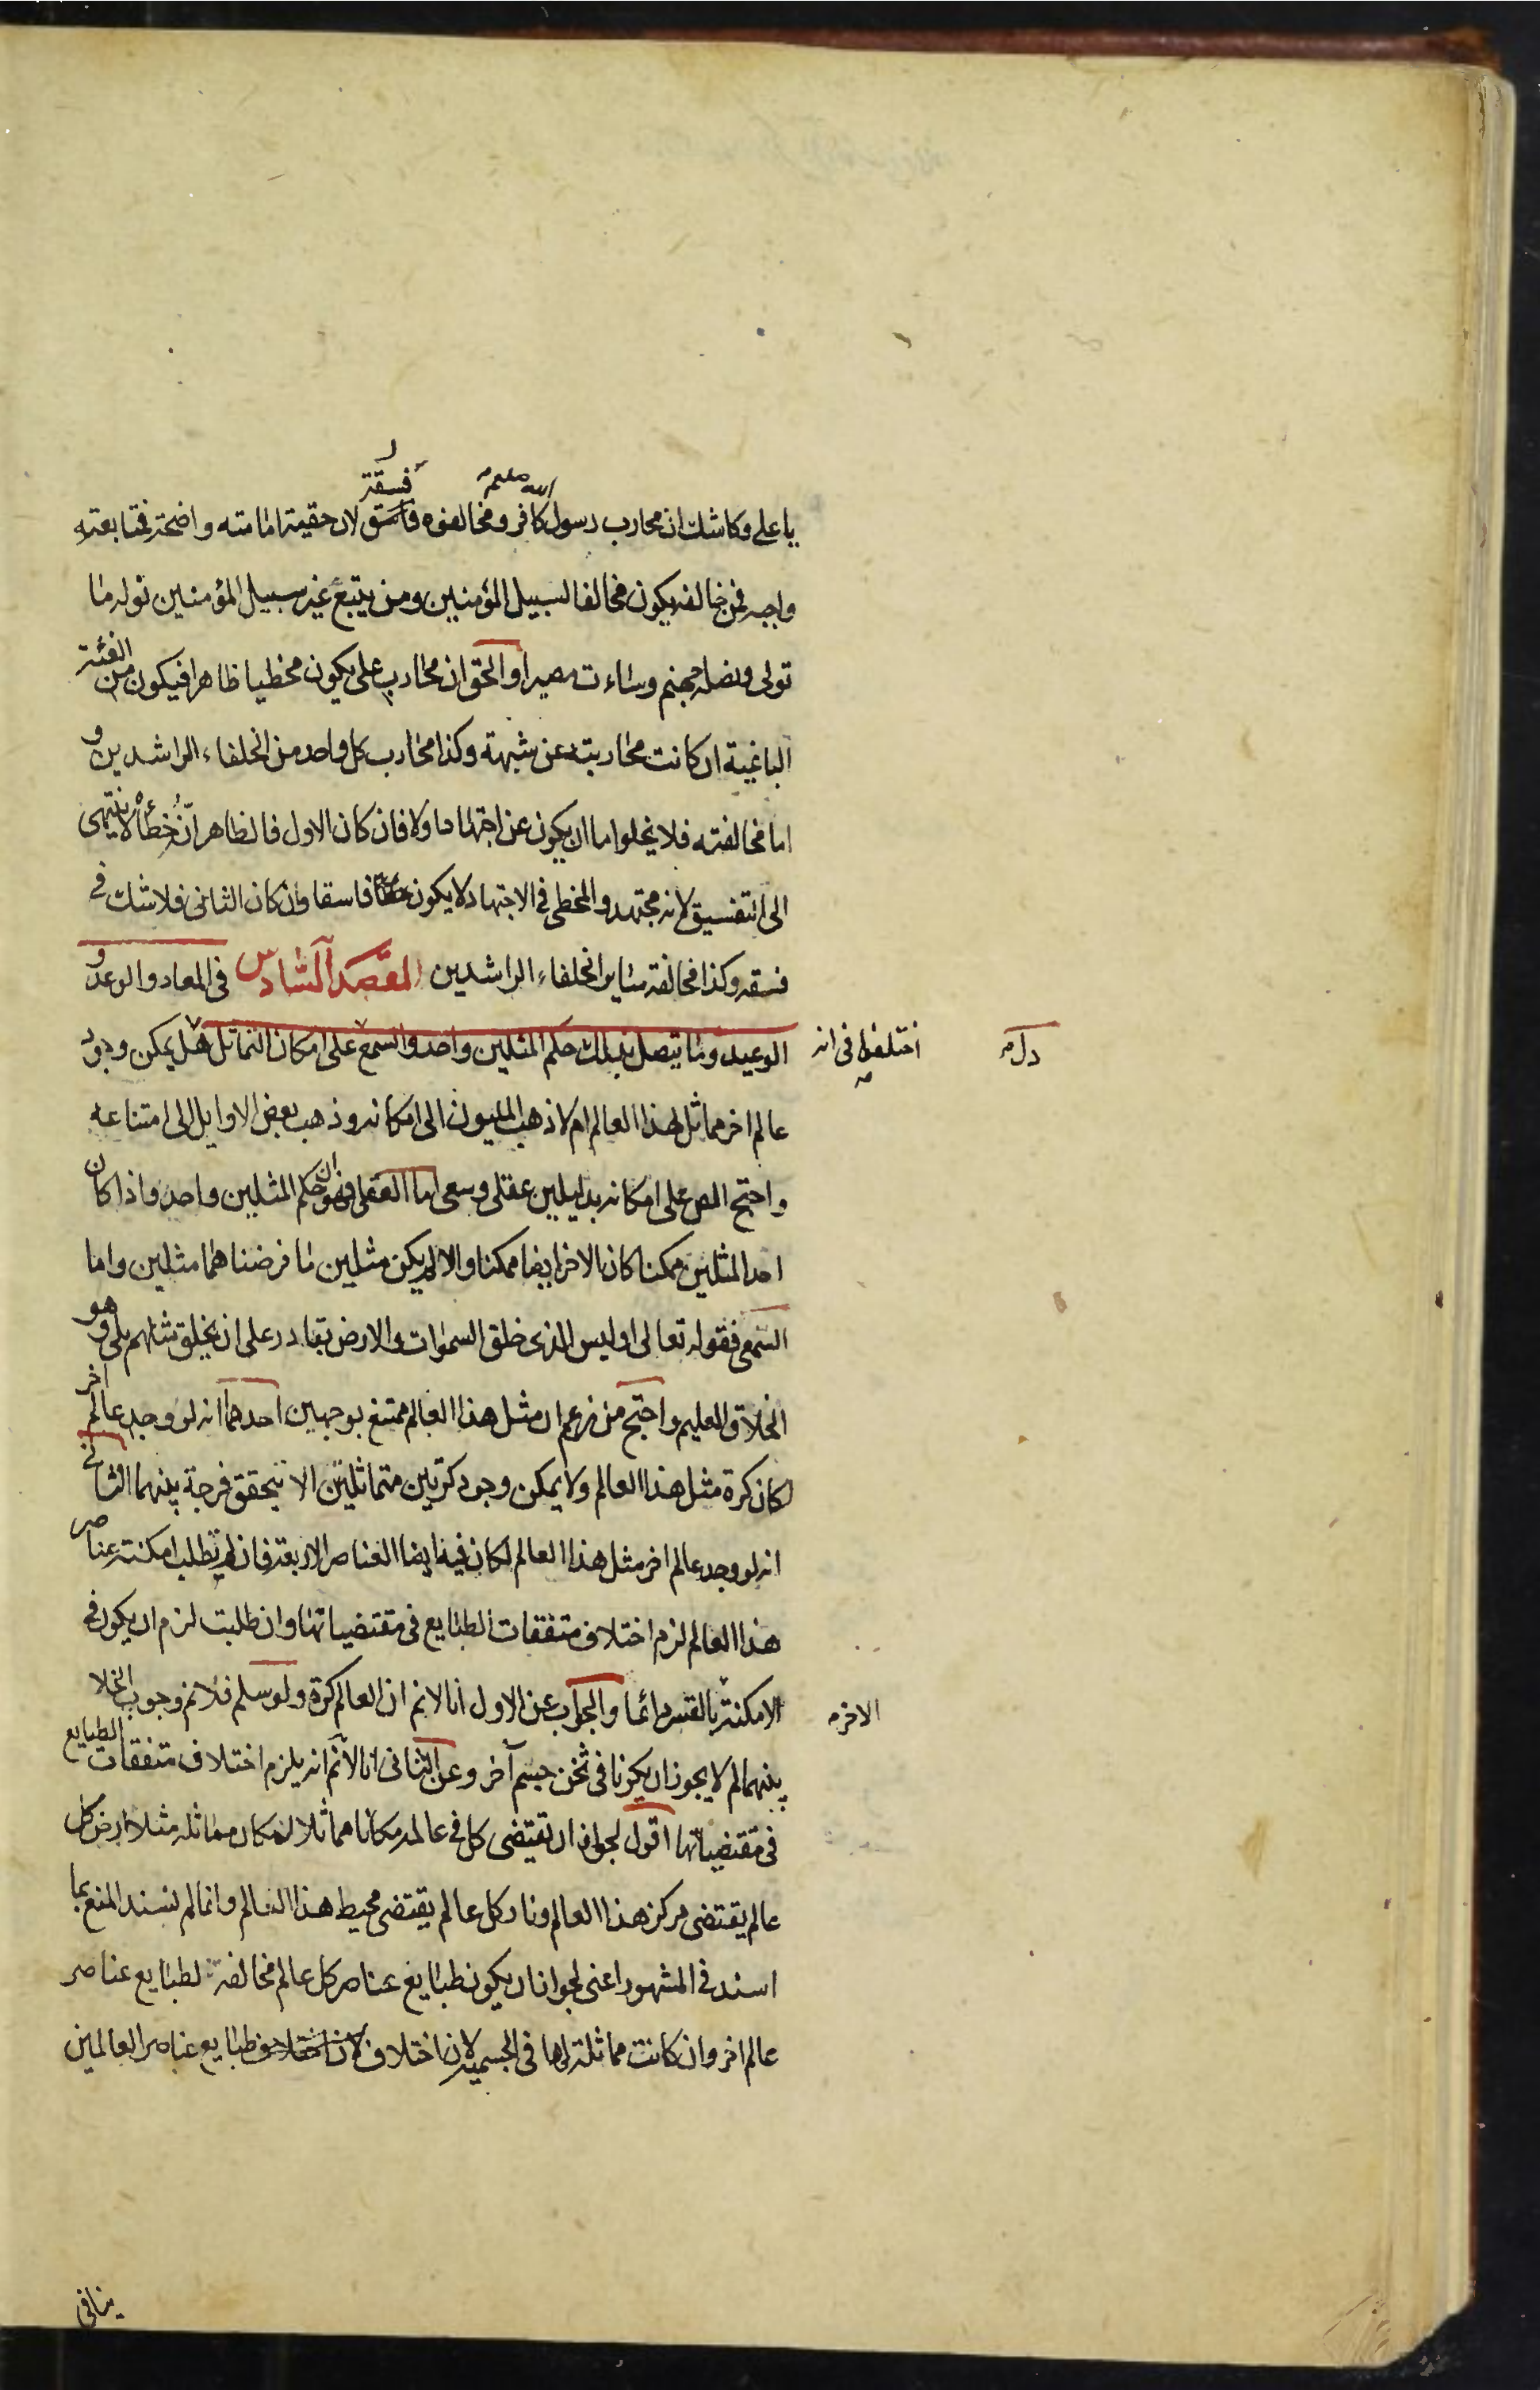 يا على وكاشك ان محارب رسول الله صلعم كافر ومخالفوه فسقة لان حقية امامته واضحة فمتابعته
واجبه فمن خالفه يكون مخالفا لسبيل المؤمنين ومن يتبع غير سبيل المؤمنين نوله ما
تولى ونصله جهنم وساءت مصيرا والحق ان محارب على يكون مخطيا ظاهرا فيكون من الفئة
الباغية ان كانت محاربته عن شبهة وكذا محارب كل واحد من الخلفاء الراشدين و
اما مخالفته فلا يخلوا ما ان يكون عن اجتهاد اولا فان كان الاول فالظاهر انّ خطأه لا ينتهى
الى التفسيق لانه مجتهد والمخطى فى الاجتهاد لا يكون فاسقا وان كان الثانى فلا شك فى
فسقه وكذا مخالفة ساير الخلفاء الراشدين المقصد السادس فى المعاد والوعد و
الوعيد وما يتصل بذلك حكم المثلين واحد والسمع على امكان التماثل هل يمكن وجود
دل
اختلفوا فى انه
عالم اخر مماثل لهذا العالم ام لا ذهب المليون الى امكانه وذهب بعض الاوايل الى امتناعه
واحتج المص على امكانه بدليلين عقلى وسمعى اما العقلى فهو ان حكم المثلين واحد واذا كان
احد المثلين ممكنا كان الاخر ايضا ممكنا والا لم يكن مثلين ما فرضناهما مثلين واما
السمعى فقوله تعالى اوليس الذى خلق السموات والارض بقادر على ان يخلق مثلهم بلى وهو
الخلاق العليم واحتج من زعم ان مثل هذا العالم ممتنع بوجهين احدهما انه لو وجد عالم اخر
لكان كرة مثل هذا العالم ولا يمكن وجود كرتين متماثلتين الا بتحقق فرجة بينهما الثانى
انه لو وجد عالم اخر مثل هذا العالم لكان فيه ايضا العناصر الاربعة فان لم تطلب امكنة عناصر
هذا العالم لزم اختلاف متفقات الطبايع فى مقتضياتها وان طلبت لزم ان يكون فى
الامكنة بالقسر دائما والجواب عن الاول انا لا نم ان العالم كرة ولو سلم فلا نم وجوب الخلا
الاخر
بينهما لم لا يجوز ان يكونا فى ثخن جسم آخر وعن الثانى انا لا نم انه يلزم اختلاف متفقات الطبايع
فى مقتضياتها اقول لجواز ان تقتضى كل فى عالمه مكانا مماثلا لمكان مماثله مثلا ارض كل
عالم يقتضى مركز هذا العالم ونار كل عالم يقتضى محيط هذا العالم وانما لم نسند المنع بما
اسند فى المشهور اعنى لجواز ان يكون طبايع عناصر كل عالم مخالفة لطبايع عناصر
عالم اخر وان كانت مماثلة لها فى الجسمية لان اختلاف طبايع عناصر العالمين
ينافى